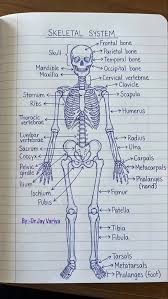 SKELETAL SYSTEM
Frontal bone
Parietal bone
Skull
Temporal bone
Mandible
Occipital bone
Maxilla
Cervical vertebrae
Clavicle
Sternum
Scapula
Ribs
Humerus
Thoracic
vertebrae
Lumbar
vertebrae
Radius
Sacrum
Ulna
Coccyx
Carpals
Pelvic
girdle
Metacarpals
Phalanges
(hand)
Ilium
Ischium
Femur
Pubis
Patella
By:-Dr.Jay Variya
Tibia
Fibula
Tarsals
Metatarsals
Phalanges (foot)